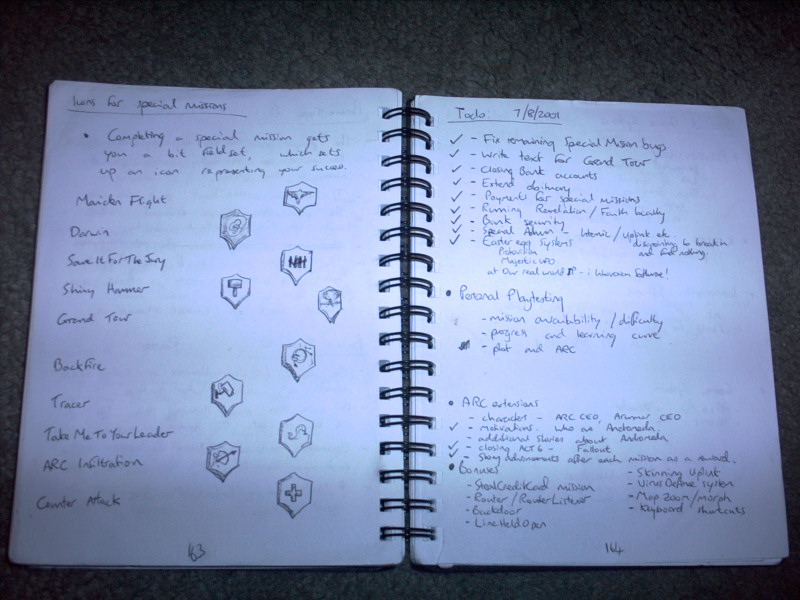 Icons for special missions
• Completing a special mission gets
you a bit field set, which sets
up an icon representing your success.
Maiden Flight
Darwin
Save It For The Jury
Shiny Hammer
Grand Tour
Backfire
Tracer
Take Me To Your Leader
ARC Infiltration
Counter Attack
163
Todo: 7/8/2001
✓ - Fix remaining Special Mission bugs
✓ - Write text for Grand Tour
✓ - Closing Bank accounts
✓ - Extend obituary
✓ - Payment for special missions
✓ - Running Revelation / Faith locally
✓ - Bank security
✓ - Special Admin - Internic / Uplink etc.
✓ - Easter egg systems
Protovision
Majestic UFO
at Our real world IP - i Introversion Software!
disappointing to break in
and find nothing.
• Personal Playtesting
- mission availability / difficulty
- progress and learning curve
- plot and ARC
• ARC extensions
- characters - ARC CEO, Arunmor CEO
✓ - motivations. Who are Andromeda
- additional stories about Andromeda
✓ - closing ACT 6 - Fallout
✓ - Story advancements after each mission as a reward.
• Bonuses
- StealCreditCard mission
- Router / RouterListener
- Backdoor
- LineHeldOpen
- Skinning Uplink
- VirusDefine system
- Map zoom/morph
- Keyboard shortcuts
164